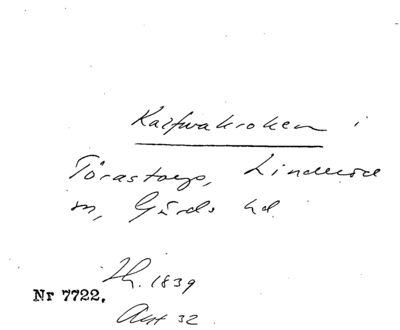 Kalfvakroken i
Törastorp, Linderöd
sn, Gärds hd.
Th. 1839
Nr 7722.
Akt 32